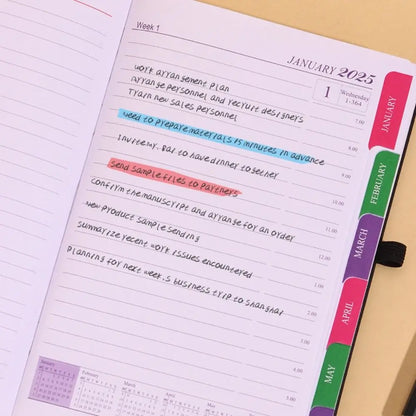 Week 1
JANUARY 2025
1 Wednesday
1-364
work arrangement plan
7.00
arrange personnel and recruit designers
Train new sales personnel
8.00
need to prepare materials 15 minutes in advance
9.00
Invite Mr. Bai to have dinner together
send sample files to partners
10.00
confirm the manuscript and arrange for an order
11.00
new product sample sending
12.00
summarize recent work issues encountered
1.00
Planning for next week's business trip to Shanghai
2.00
3.00
4.00
5.00
6.00
January
February
March
April
May
JANUARY
FEBRUARY
MARCH
APRIL
MAY